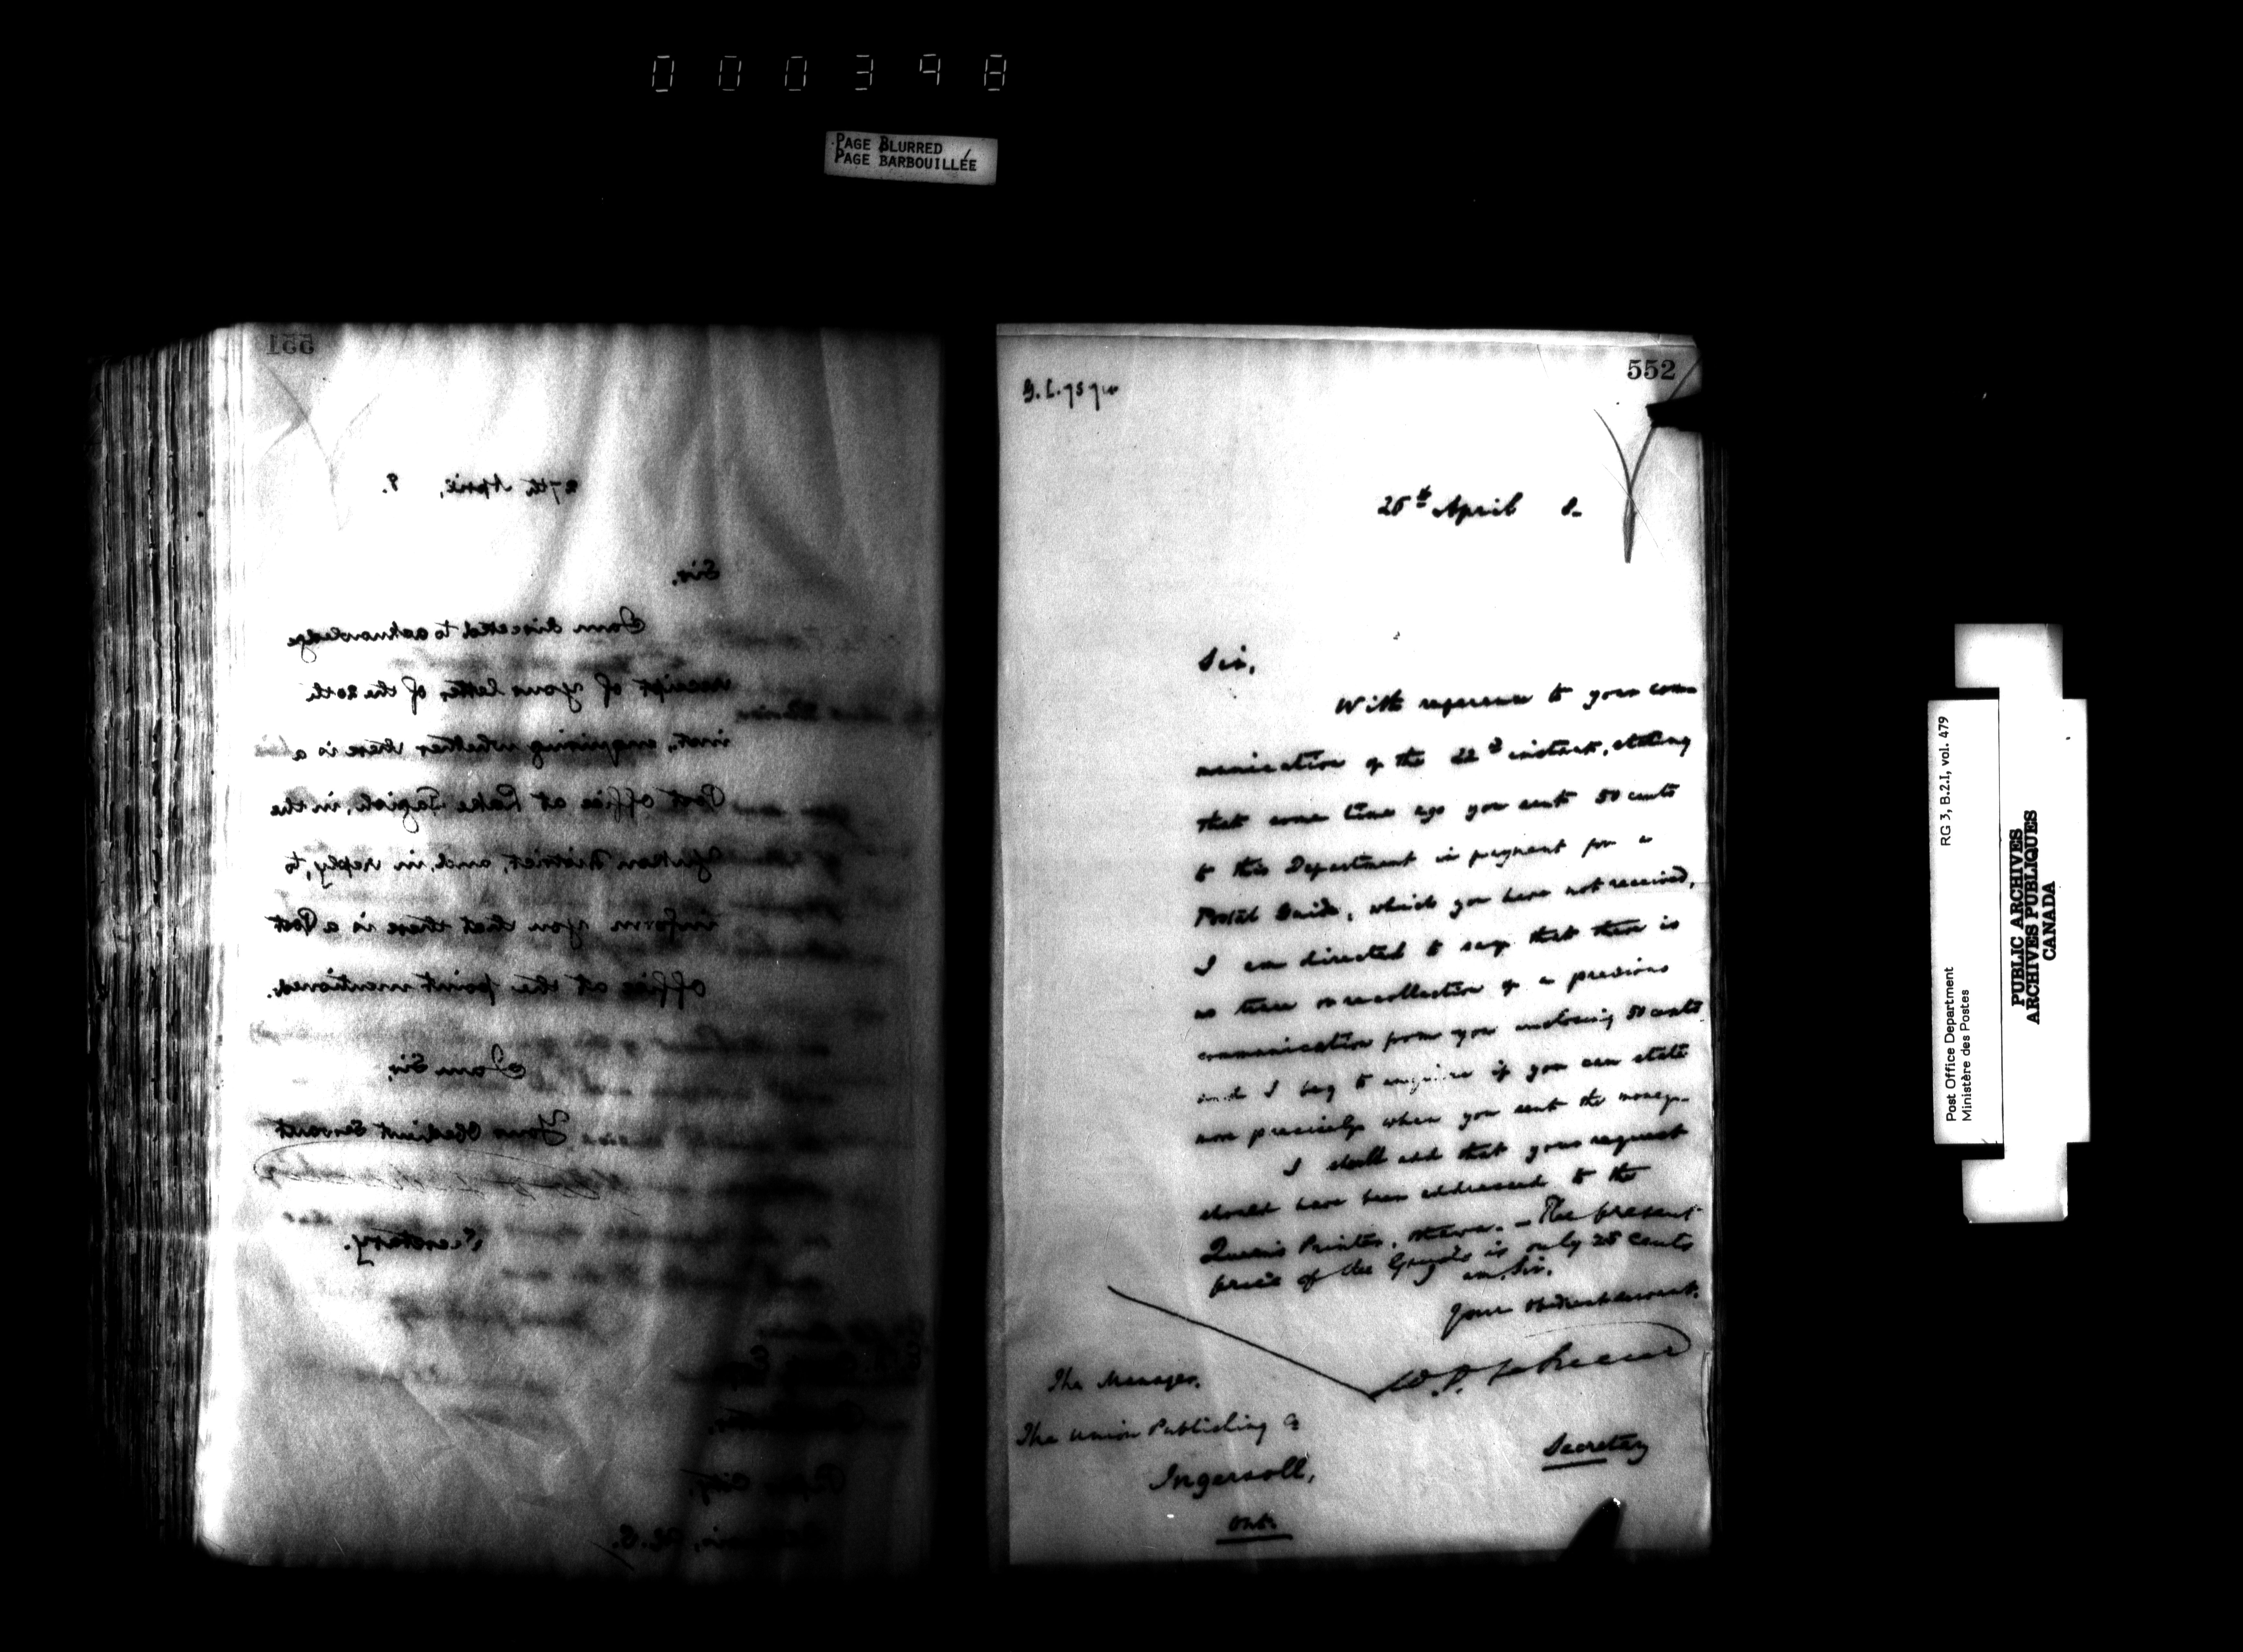 000398
PAGE BLURRED
PAGE BARBOUILLÉE
551
27th April, 8.
Sir,
I am directed to acknowledge
receipt of your letter of the 20th
inst., enquiring whether there is a
Post Office at Lake Tagish, in the
Yukon District, and, in reply, to
inform you that there is a Post
Office at the point mentioned.
I am Sir,
Your Obedient Servant
Secretary.
552
26th April 8.
Sir,
With reference to your com-
munication of the 22d instant, stating
that some time ago you sent 50 cents
to this Department in payment for a
Postal Guide, which you have not received,
I am directed to say that there is
no trace or recollection of a previous
communication from you enclosing 50 cents
and I beg to enquire if you can state
more precisely when you sent the money.
I shall add that your request
should have been addressed to the
Queen's Printer, Ottawa. - The present
price of the Guide is only 25 cents
am, Sir,
Your Obedient Servant.
Secretary
The Manager,
The Union Publishing Co
Ingersoll,
Ont.
Post Office Department RG 3, B.2.I, vol. 479
Ministère des Postes
PUBLIC ARCHIVES
ARCHIVES PUBLIQUES
CANADA